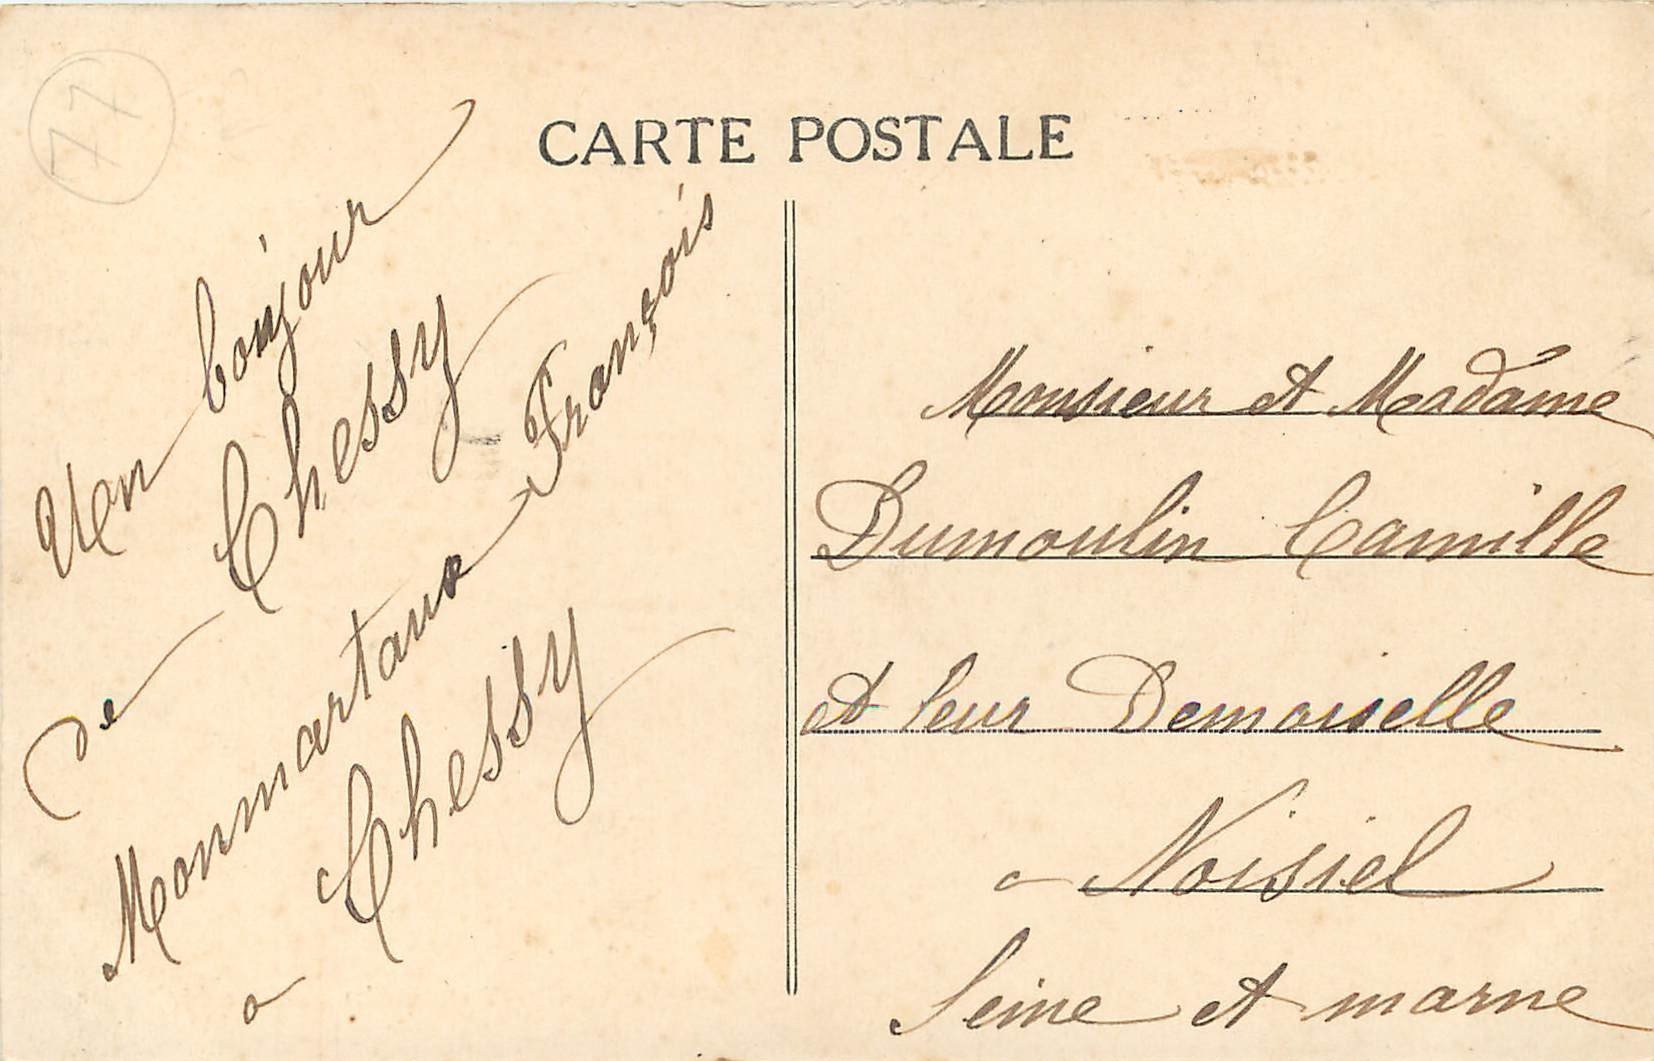 77
CARTE POSTALE
Un bonjour
de Chessy
Monmartaux François
a Chessy
Monsieur et Madame
Dumoulin Camille
et leur Demoiselle
a Noisiel
Seine et marne